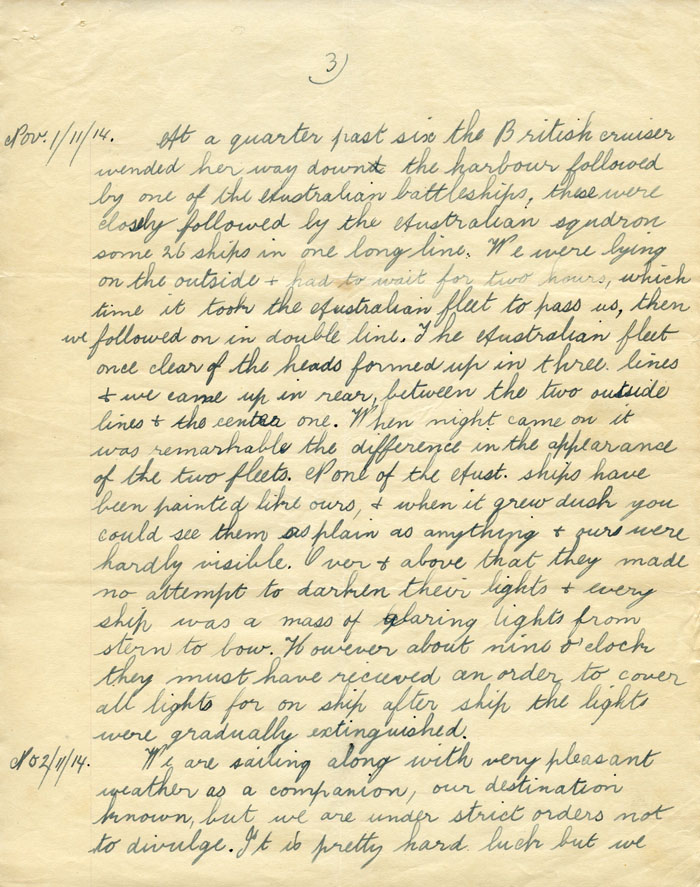 3)
Nov. 1/11/14. At a quarter past six the British cruiser
wended her way down the harbour followed
by one of the Australian battleships, these were
closely followed by the Australian squdron
some 26 ships in one long line. We were lying
on the outside + had to wait for two hours, which
time it took the Australian fleet to pass us, then
we followed on in double line. The Australian fleet
once clear of the heads formed up in three lines
+ we came up in rear, between the two outside
lines + the center one. When night came on it
was remarkable the difference in the appearance
of the two fleets. None of the Aust. ships have
been painted like ours, + when it grew dusk you
could see them as plain as anything + ours were
hardly visible. Over + above that they made
no attempt to darken their lights + every
ship was a mass of glaring lights from
stern to bow. However about nine o'clock
they must have recieved an order to cover
all lights for on ship after ship the lights
were gradually extinguished.
No 2/11/14. We are sailing along with very pleasant
weather as a companion, our destination
known, but we are under strict orders not
to divulge. It is pretty hard luck but we